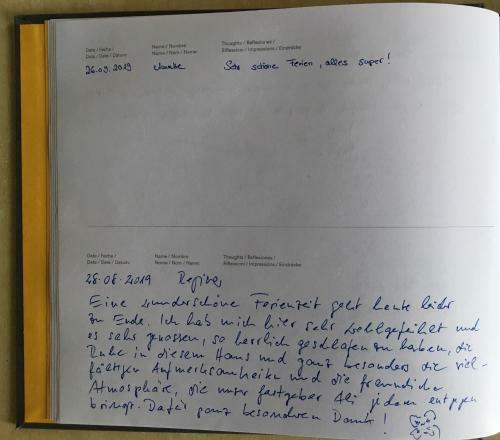 Date / Fecha / Name / Nombre Thoughts / Reflexiones /
Date / Data / Datum Nome / Nom / Name Riflessioni / Impressions / Eindrücke
26.09.2019 Sehr schöne Ferien, alles super!
Date / Fecha / Name / Nombre Thoughts / Reflexiones /
Date / Data / Datum: Nome / Nom / Name: Riflessioni / Impressions / Eindrücke
28.08.2019
Eine wunderschöne Ferienzeit geht heute leider
zu Ende. Ich hab mich hier sehr wohlgefühlt und
es sehr genossen, so herrlich geschlafen zu haben, die
Ruhe in diesem Haus und ganz besonders die viel-
fältigen Aufmerksamkeiten und die freundliche
Atmosphäre, die unser Gastgeber Ali jedem entgegen
bringt. Dafür ganz besonderen Dank!